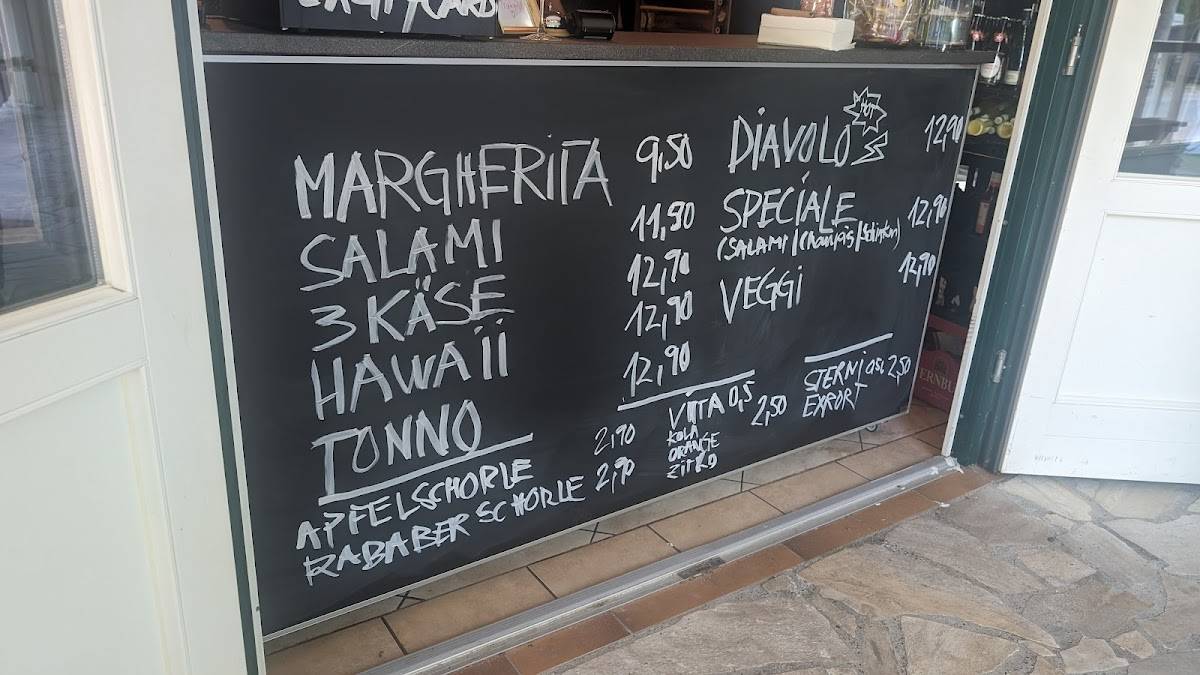 MARGHERITA 9,50
SALAMI 11,90
3 KÄSE 12,90
HAWAII 12,90
TONNO 12,90
APFELSCHORLE 2,90
RABABER SCHORLE 2,90
DIAVOLO HOT 12,90
SPECIALE 12,90
(SALAMI/
VEGGI 12,90
VITA 0,5 2,50
KOLA
ORANGE
ZITRO
STERNI 2,50
EXPORT